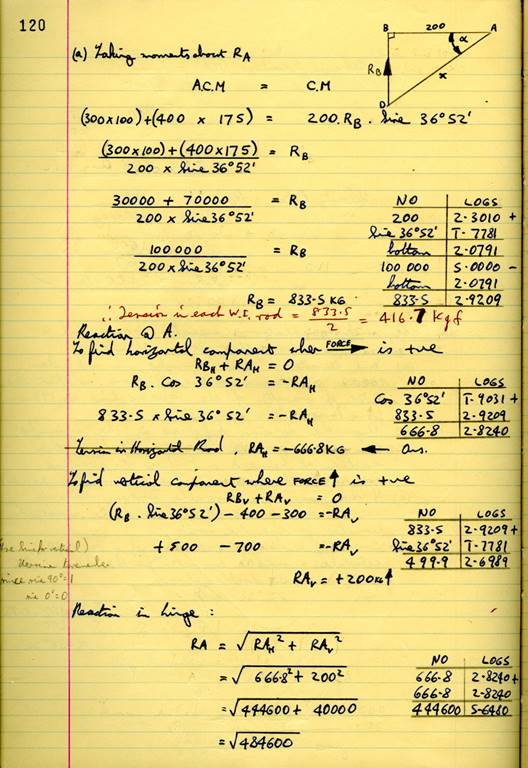 120
B 200 A
α
R_B
x
D
(a) Taking moments about R_A
A.C.M = C.M
(300x100)+(400 x 175) = 200.R_B. Sine 36°52'
(300x100)+(400x175) = R_B
200 x Sine 36°52'
30000 + 70000 = R_B
200 x Sine 36°52'
100 000 = R_B
200 x Sine 36°52'
R_B = 833.5 KG
NO LOGS
200 2.3010 +
Sine 36°52' T.7781
bottom 2.0791
100 000 5.0000 -
bottom 2.0791
833.5 2.9209
∴ Tension in each W.I. rod = 833.5 = 416.7 Kgf
2
Reaction @ A.
To find horizontal component when FORCE → is +ve
RB_H + RA_H = 0
R_B. Cos 36°52' = -RA_H
833.5 x Sine 36°52' = -RA_H
NO LOGS
Cos 36°52' T.9031 +
833.5 2.9209
666.8 2.8240
Tension in Horizontal Rod. RA_H = -666.8KG ← Ans.
To find vertical component where FORCE ↑ is +ve
RB_V + RA_V = 0
(R_B. Sine 36°52') - 400 - 300 = -RA_V
+500 - 700 = -RA_V
RA_V = +200K ↑
NO LOGS
833.5 2.9209 +
Sine 36°52' T.7781
499.9 2.6989
since sin 90°=1
sin 0°=0
Reaction in hinge :
RA = √RA_H² + RA_V²
= √666.8² + 200²
= √444600 + 40000
= √484600
NO LOGS
666.8 2.8240 +
666.8 2.8240
444600 5.6480